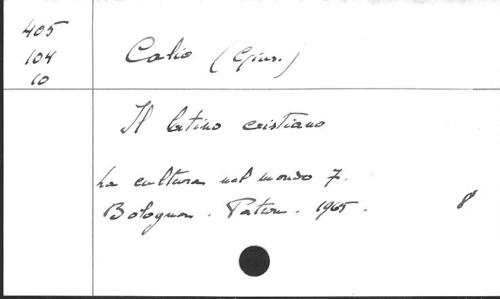 405
104
10
Calio (Gius.)
Il latino cristiano
La cultura nel mondo 7.
Bologna. Patron. 1965.
8